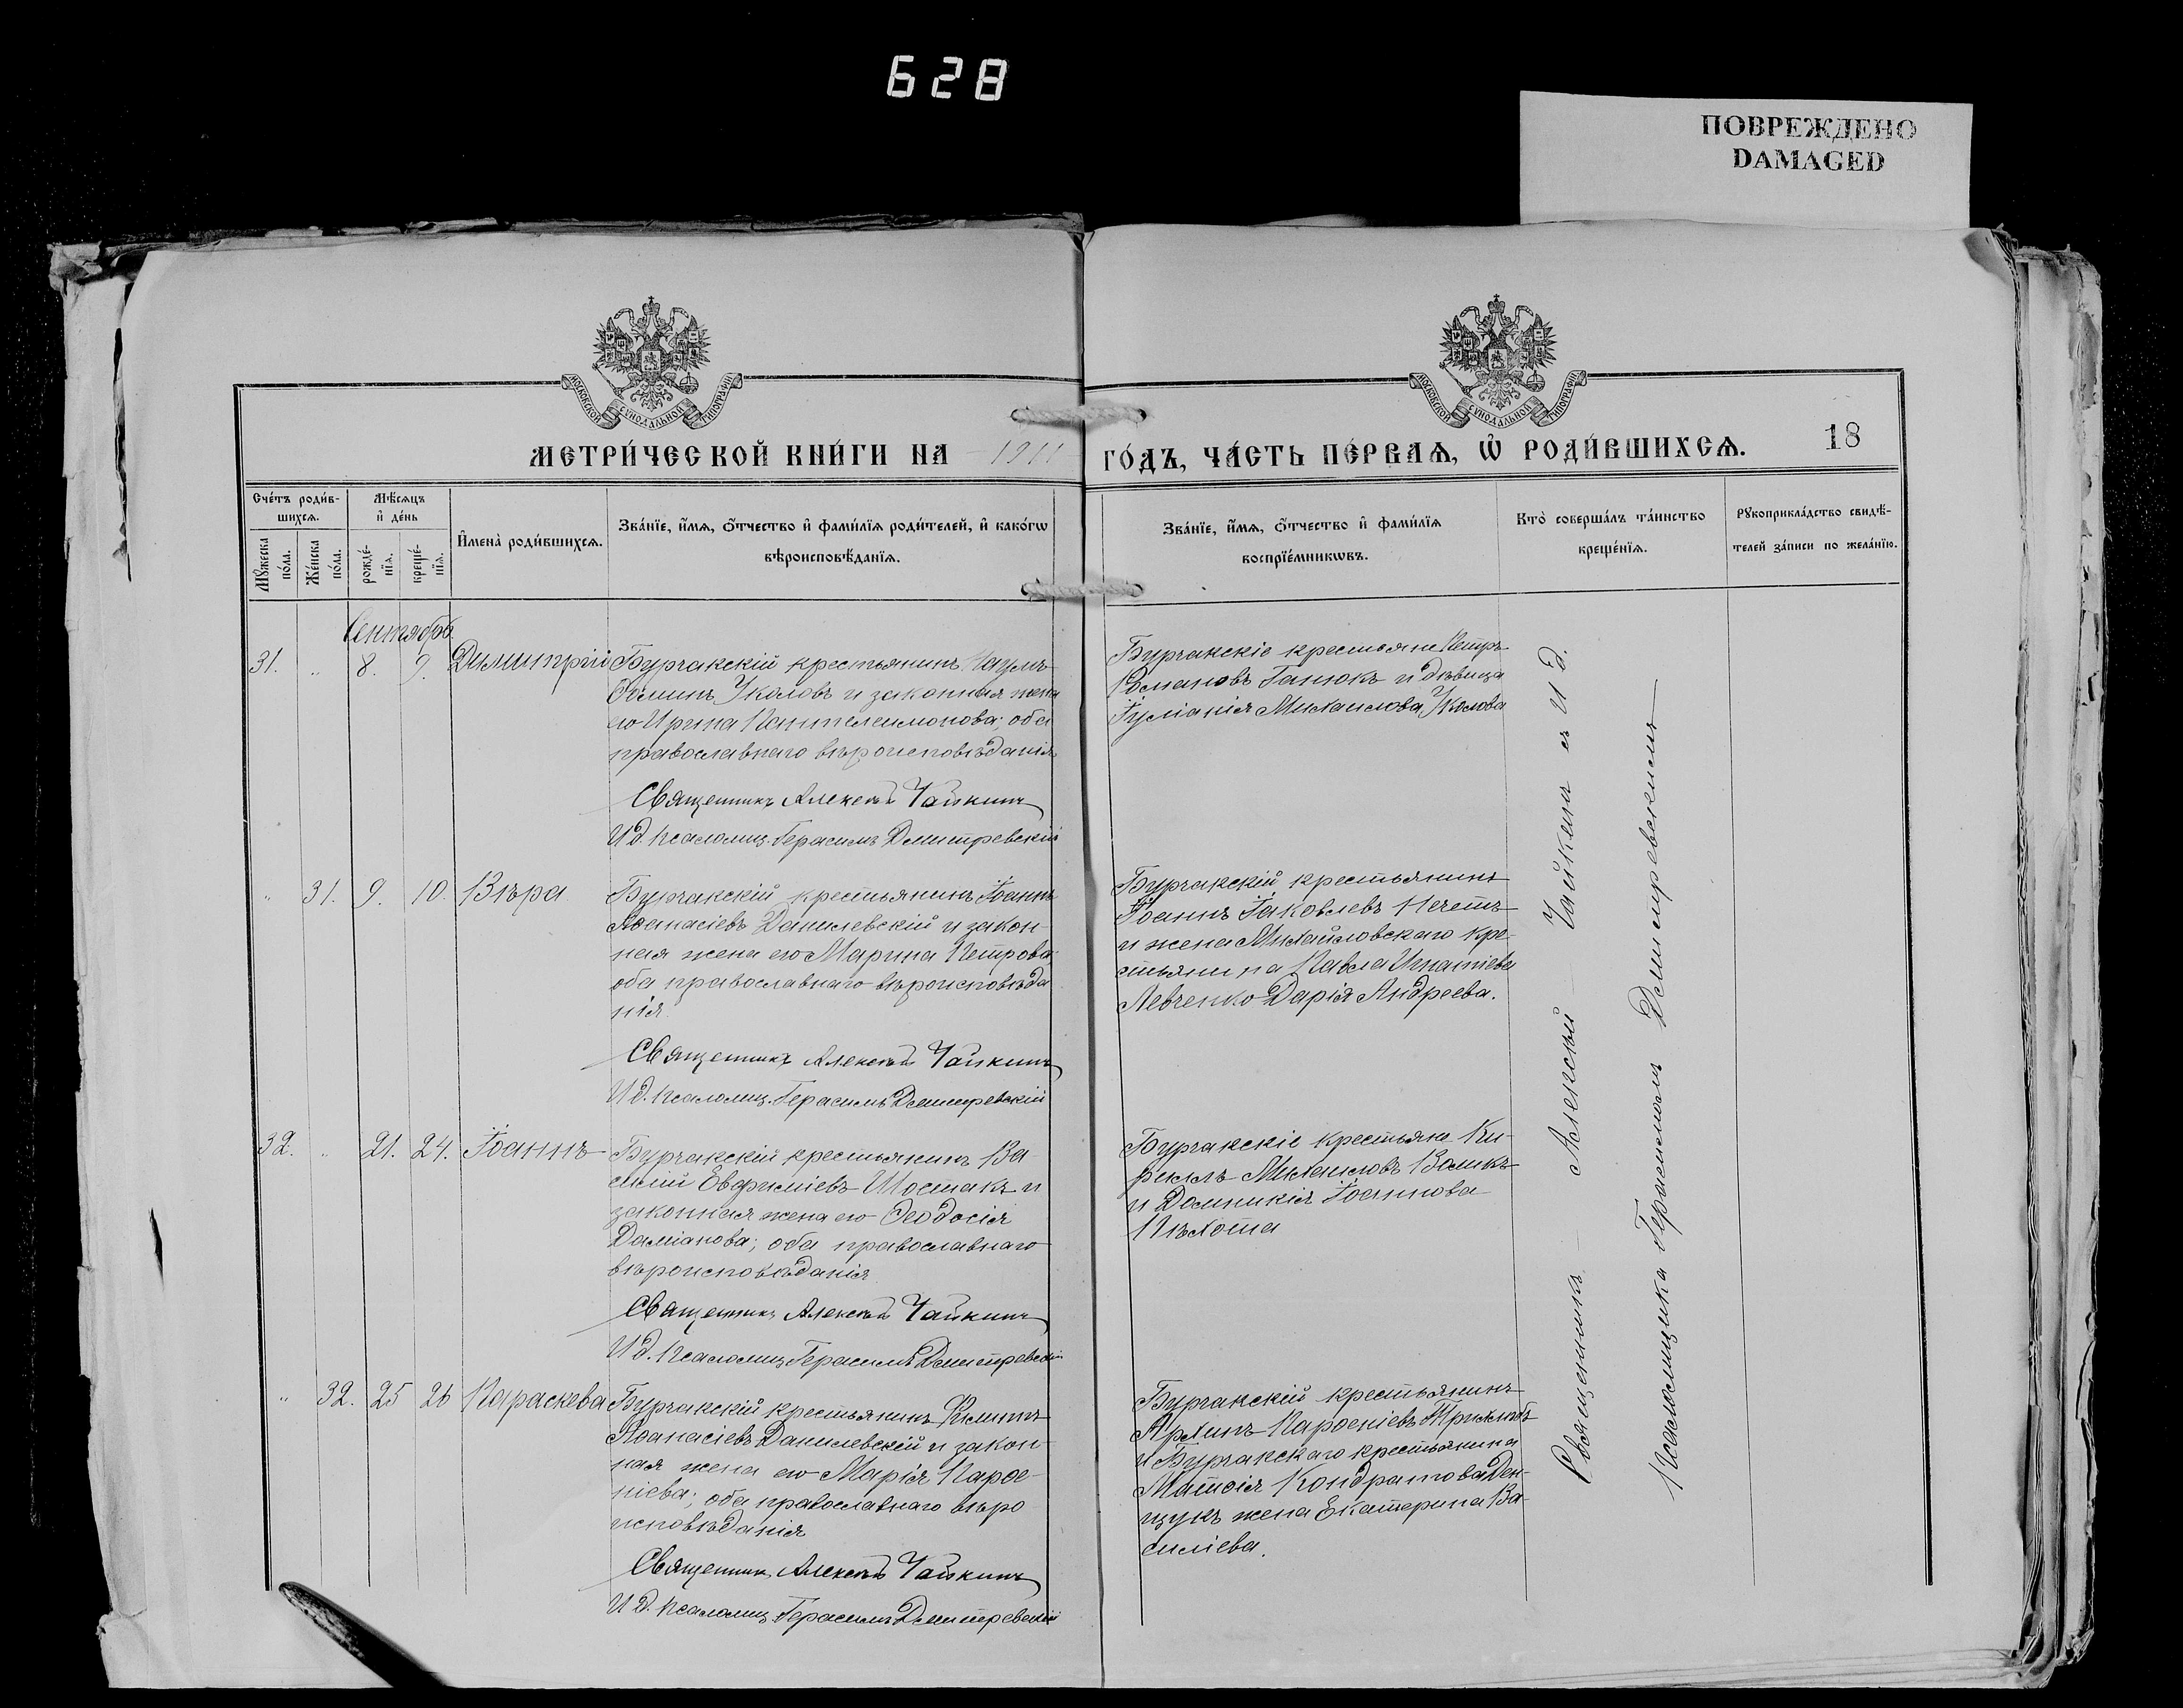 628
ПОВРЕЖДЕНО
DAMAGED
МОСКОВСКОЙ СѴНОДАЛЬНОЙ ТИПОГРАФІИ
МОСКОВСКОЙ СѴНОДАЛЬНОЙ ТИПОГРАФІИ
МЕТРИ́ЧЕСКОЙ КНИ́ГИ НА 1911 ГО́ДЪ, ЧА́СТЬ ПЕ́РВАѦ, Ѿ РОДИ́ВШИХСѦ.
18
Сче́тъ роди́в-
шихсѧ.
Мꙋ́жеска
по́ла.
Же́нска
по́ла.
Мѣ́сѧцъ
и҆ де́нь
рожде́-
нїѧ.
креще́-
нїѧ.
И҆мена̀ роди́вшихсѧ.
Зва́нїе, и҆́мѧ, ѻ҆́тчество и҆ фами́лїѧ роди́телей, и҆ како́гѡ
вѣроисповѣ́данїѧ.
Зва́нїе, и҆́мѧ, ѻ҆́тчество и҆ фами́лїѧ
воспрїе́мникѡвъ.
Кто̀ соверша́лъ та́инство
креще́нїѧ.
Рꙋкоприкла́дство свидѣ́-
телей за́писи по жела́нїю.
Сентябрь
31. " 8. 9. Димитрій
Бурчакскій крестьянинъ Наумъ
Ѳоминъ Уколовъ и законная жена
его Ирина Пантелеимонова; оба
православнаго вѣроисповѣданія
Священникъ Алексѣй Чайкинъ
И д. псаломщ. Герасимъ Дмитревскій
Бурчакскіе крестьяне Петръ
Романовъ Ганюкъ и дѣвица
Іуліанія Михаилова Уколова
" 31. 9. 10. Вѣра
Бурчакскій крестьянинъ Іоаннъ
Аѳанасіевъ Данилевскій и закон-
ная жена его Марина Петрова
оба православнаго вѣроисповѣда
нія
Священникъ Алексѣй Чайкинъ
И д. псаломщ. Герасимъ Дмитревскій
Бурчакскій крестьянинъ
Іоаннъ Іаковлевъ Нечетъ
и жена Михайловскаго кре-
стьянина Павла Игнатіева
Левченко Дарія Андреева.
32. " 21. 24. Іоаннъ
Бурчакскій крестьянинъ Ва-
силій Евфиміевъ Шостакъ и
законная жена его Ѳеодосія
Даміанова; оба православнаго
вѣроисповѣданія
Священникъ Алексѣй Чайкинъ
И д. псаломщ Герасимъ Дмитревскій
Бурчакскіе крестьяне Ки-
риллъ Михаиловъ Воликъ
и Домникія Іоаннова
Пѣхота
" 32. 25 26 Параскева
Бурчакскій крестьянинъ Климъ
Аѳанасіевъ Данилевскій и закон-
ная жена его Марія Парѳе-
ніева; оба православнаго вѣро
исповѣданія
Священник Алексѣй Чайкинъ
И д. псаломщ Герасимъ Дмитревскій
Бурчакскій крестьянинъ
Архипъ Парѳеніевъ
и Бурчакскаго крестьянина
Матѳія Кондратова Ден-
щукъ жена Екатерина Ва-
силіева.
Священникъ — Алексѣй Чайкинъ съ И д.
Псаломщика Герасимомъ Дмитревскимъ